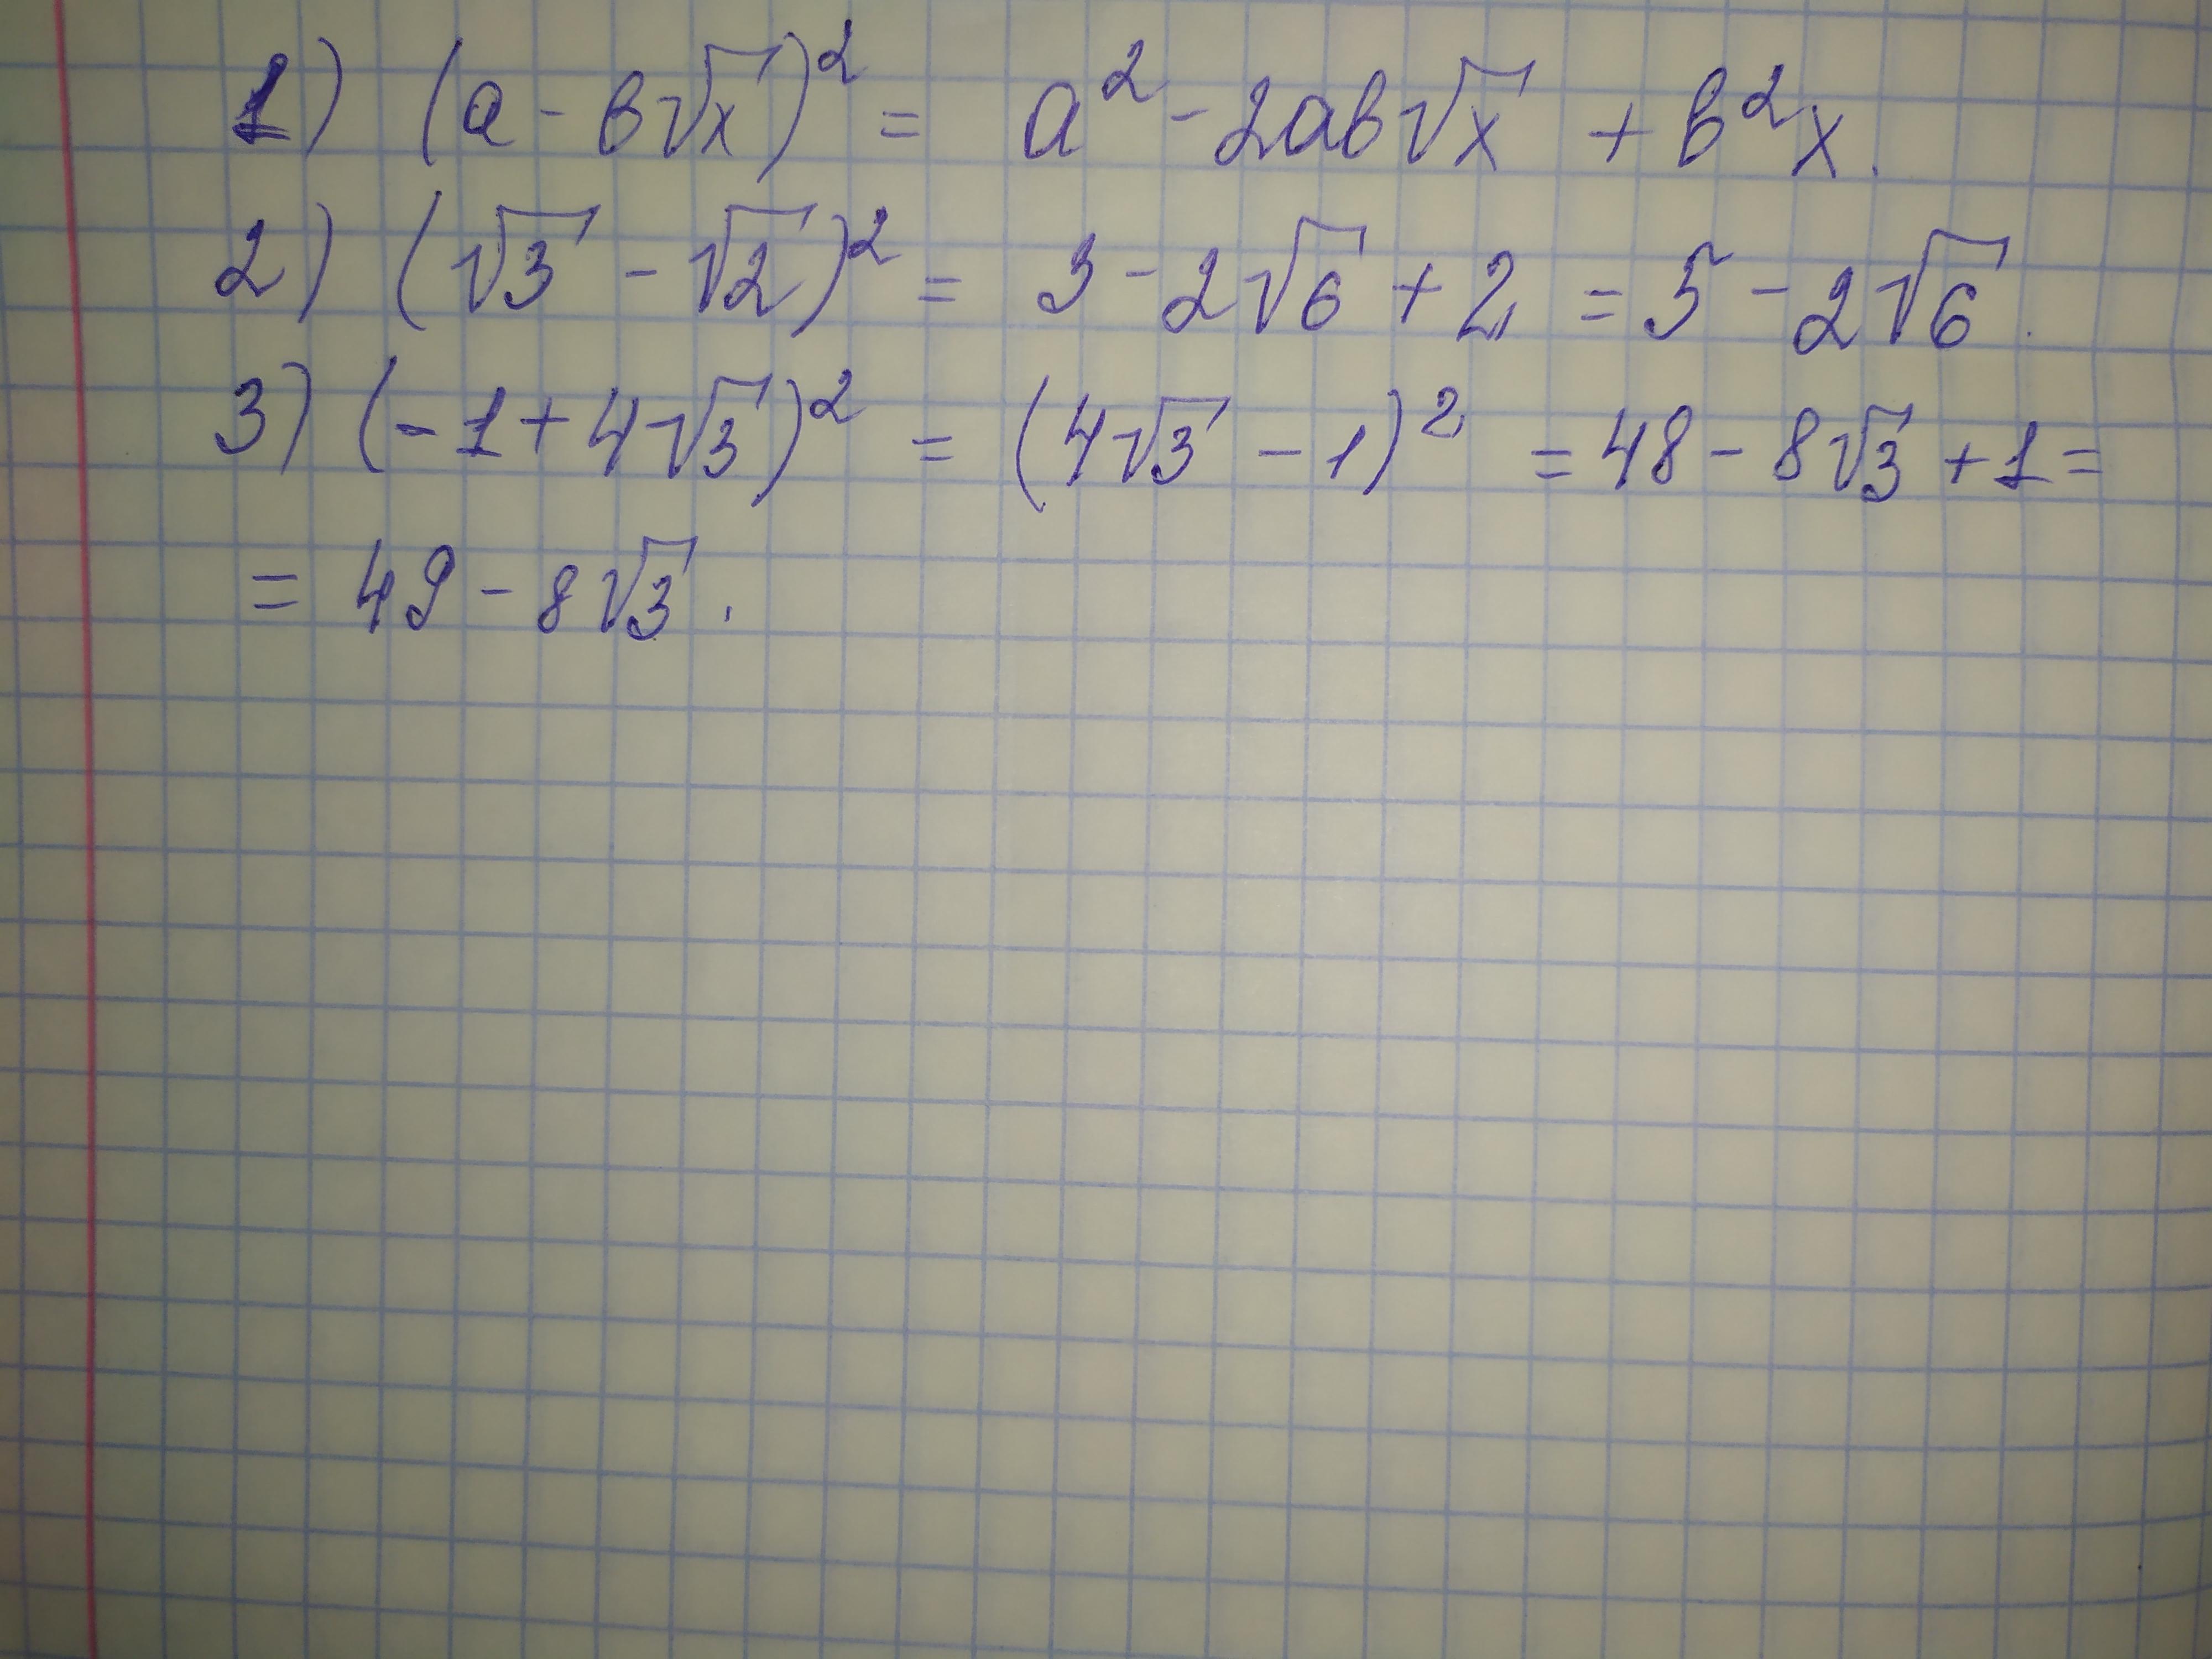 1) (a - b√x)² = a² - 2ab√x + b²x.
2) (√3 - √2)² = 3 - 2√6 + 2 = 5 - 2√6.
3) (-1 + 4√3)² = (4√3 - 1)² = 48 - 8√3 + 1 =
= 49 - 8√3.